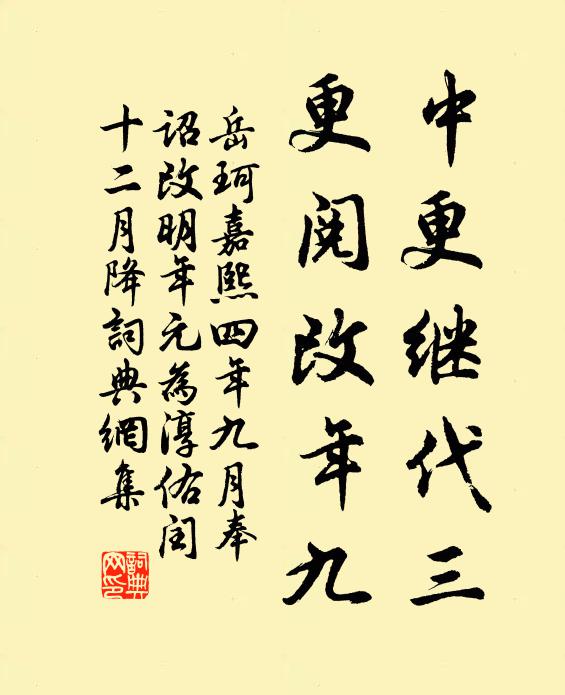 中更继代三
更阅改年九
岳珂嘉熙四年九月奉
诏改明年元為淳佑闰
十二月降詞典網集
詞典
网印